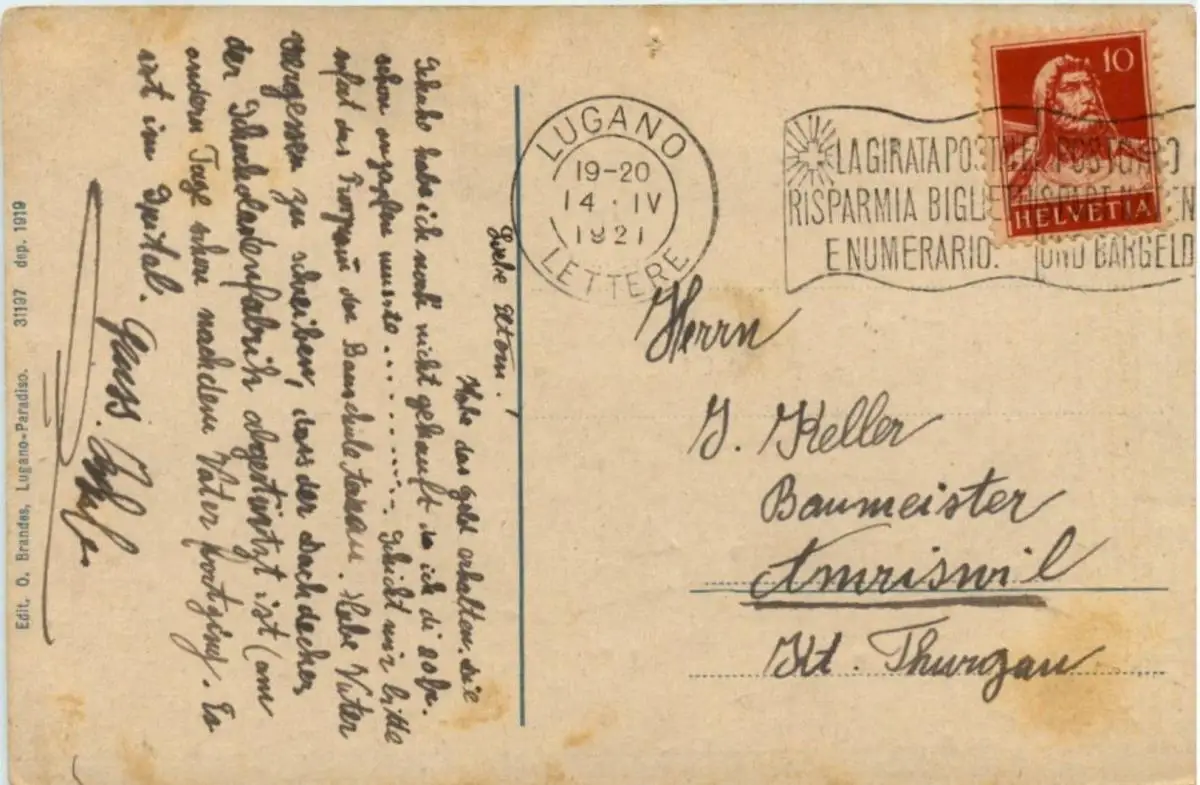 Liebe Eltern!
Habe das Geld erhalten. Die
Schuhe habe ich noch nicht gekauft da ich di 20 Fr.
schon angreifen musste......... Schickt mir bitte
sofort das Programm der Bauschule Habe Vater
vergessen zu schreiben, dass der Dachdecker
der Schokoladenfabrik abgestürtzt ist (am
andern Tage schon nachdem Vater fortging. Es
ist im Spital.
Gruss.
Edit. O. Brandes, Lugano-Paradiso. 31197 dep. 1919
LUGANO
19-20
14·IV
1921
LETTERE
LA GIRATA POSTALE
RISPARMIA BIGLIETTI
E NUMERARIO.
POSTGIRO
SPART NOTEN
UND BARGELD
10
HELVETIA
Herrn
J. Keller
Baumeister
Amriswil
Kt. Thurgau